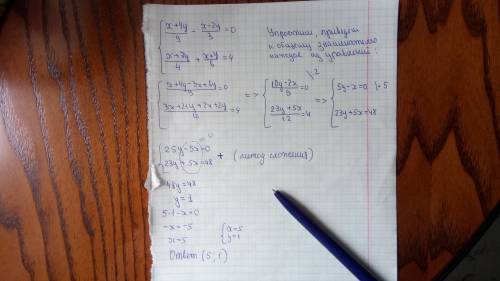 { (x+4y)/9 - (x-2y)/3 = 0
{ (x+7y)/4 + (x+y)/6 = 4
Упростим, приведём
к общему знаменателю
каждое из уравнений:
{ (x+4y-3x+6y)/9 = 0 => { (10y-2x)/9 = 0 |:2 => { 5y-x=0 |·5
{ (3x+21y+2x+2y)/12 = 4 { (23y+5x)/12 = 4 { 23y+5x=48
{ 25y-5x=0
{ 23y+5x=48 + (метод сложения)
48y=48
y=1
5·1-x=0
-x=-5
x=5
{ x=5
{ y=1
Ответ (5; 1)